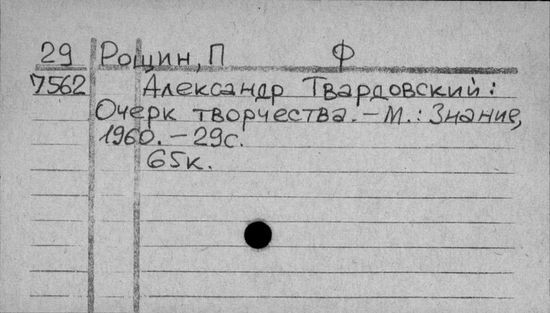 29 Рощин, П Ф
7562 Александр Твардовский:
Очерк творчества. – М.: Знание,
1960. – 29с.
65к.